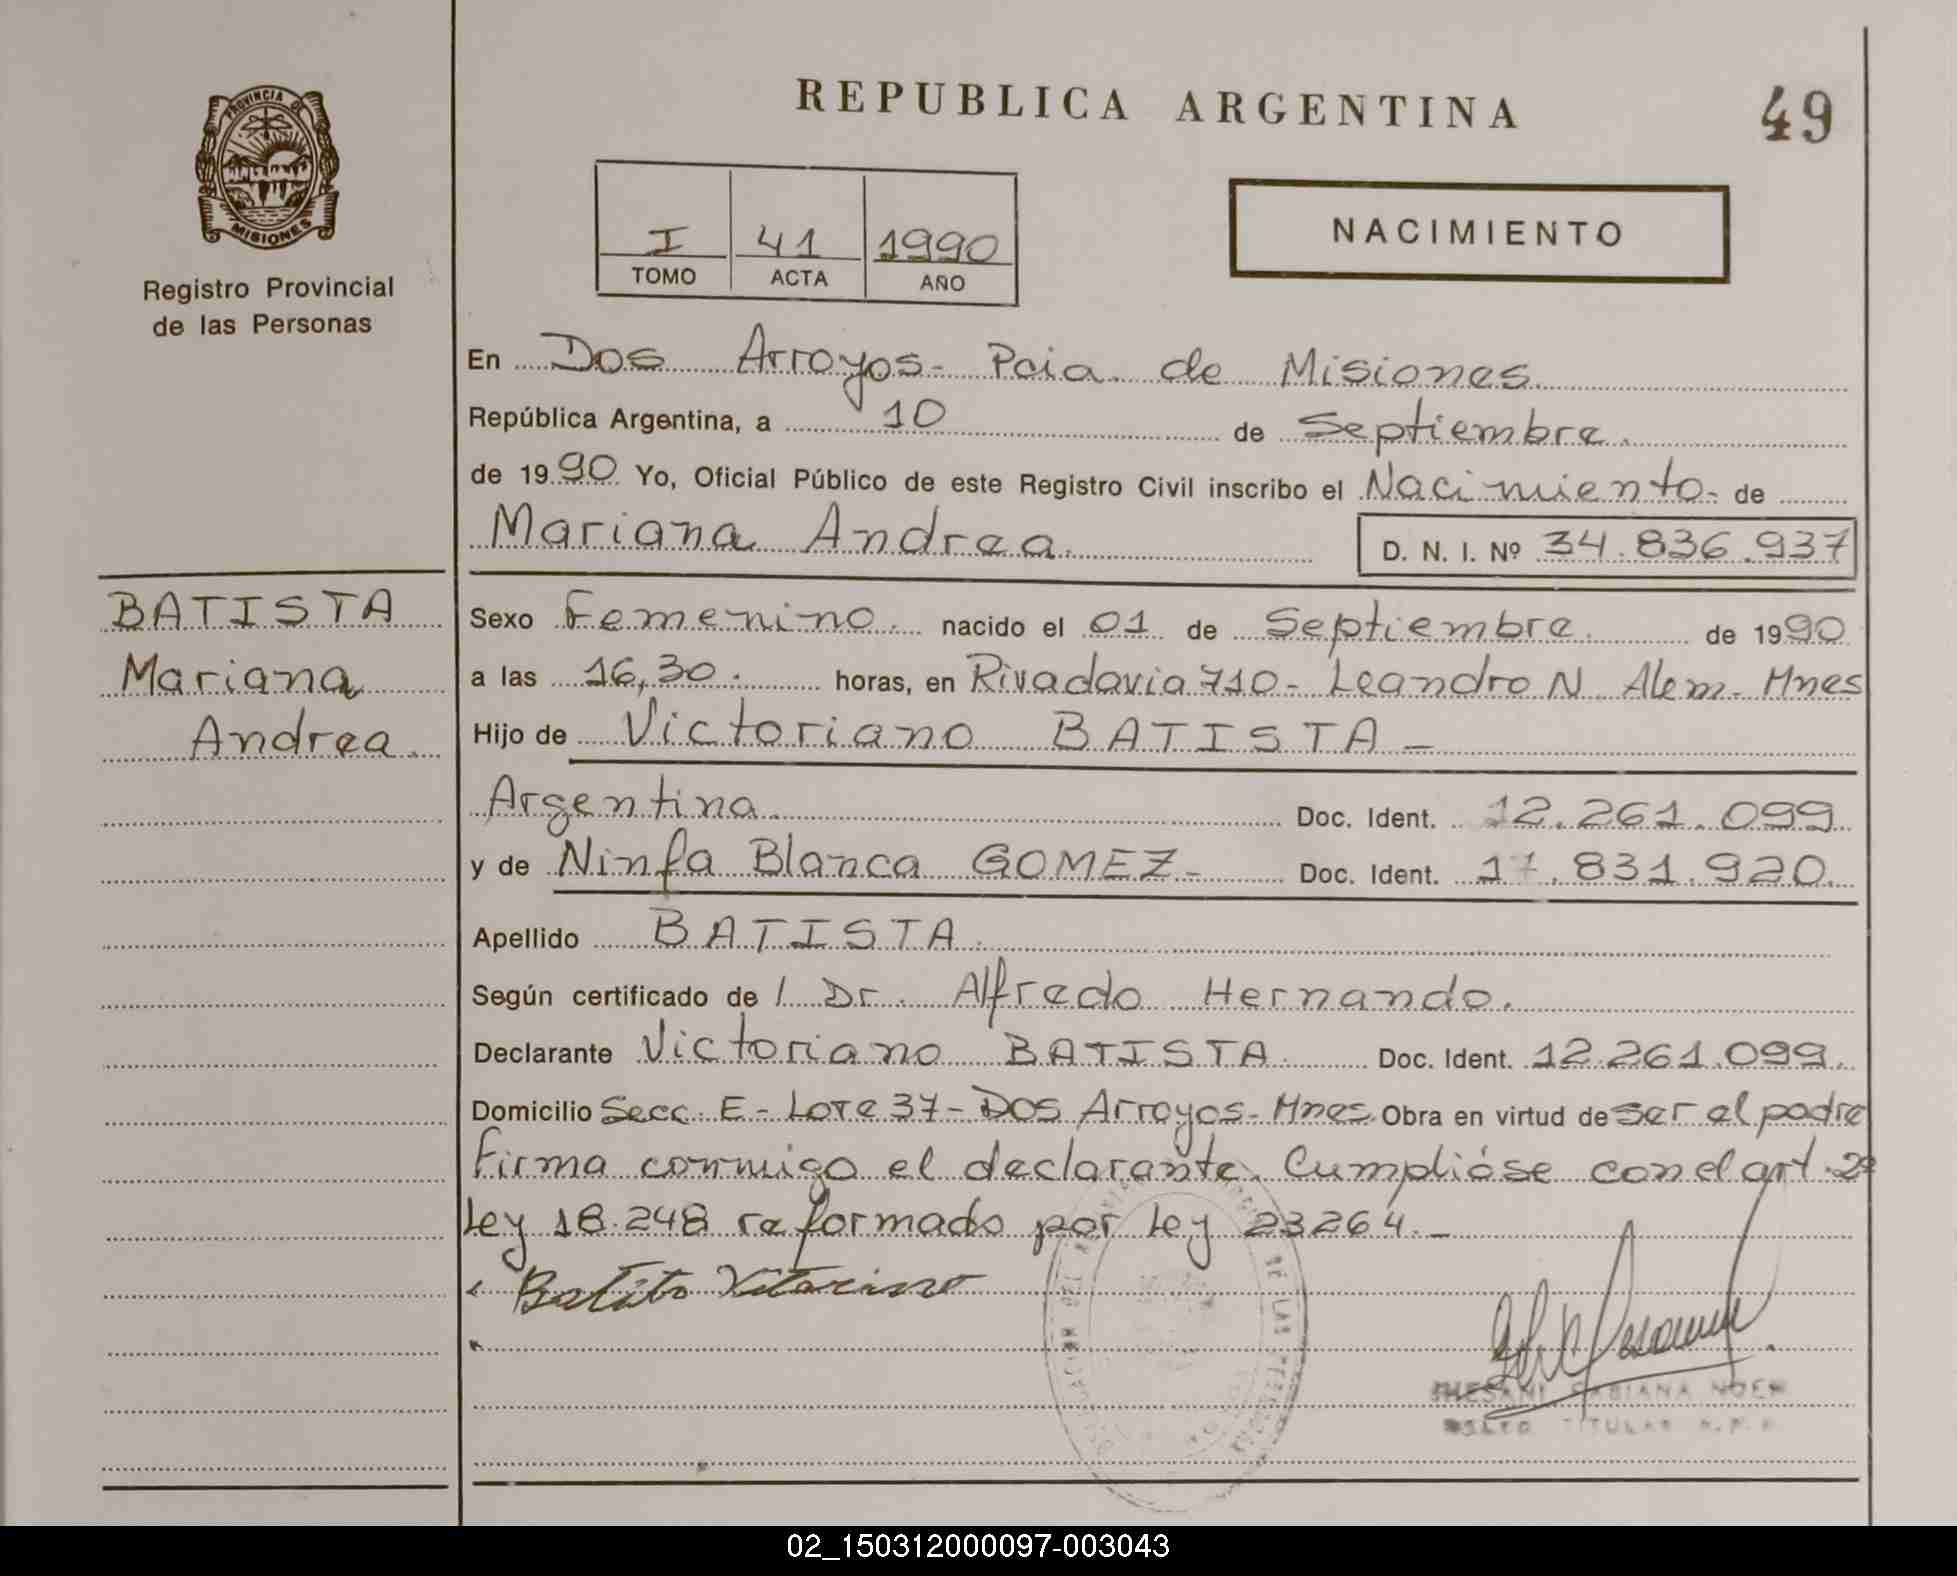 REPUBLICA ARGENTINA
49
PROVINCIA DE
MISIONES
Registro Provincial
de las Personas
I 41 1990
TOMO ACTA AÑO
NACIMIENTO
En Dos Arroyos - Pcia. de Misiones
República Argentina, a 10 de Septiembre.
de 1990 Yo, Oficial Público de este Registro Civil inscribo el Nacimiento - de
Mariana Andrea. D. N. I. Nº 34.836.937
BATISTA
Mariana
Andrea.
Sexo Femenino. nacido el 01 de Septiembre. de 1990
a las 16,30. horas, en Rivadavia 710 - Leandro N. Alem - Mnes
Hijo de Victoriano BATISTA -
Argentina. Doc. Ident. 12.261.099
y de Ninfa Blanca GOMEZ - Doc. Ident. 17.831.920.
Apellido BATISTA.
Según certificado de / Dr. Alfredo Hernando.
Declarante Victoriano BATISTA. Doc. Ident. 12.261.099.
Domicilio Secc. E - Lote 37 - Dos Arroyos - Mnes. Obra en virtud de ser el padre
Firma conmigo el declarante. Cumplióse con el art. 2º
Ley 18.248 reformado por Ley 23264. -
FABIANA NOEMI
TITULAR
DE LAS
02_150312000097-003043